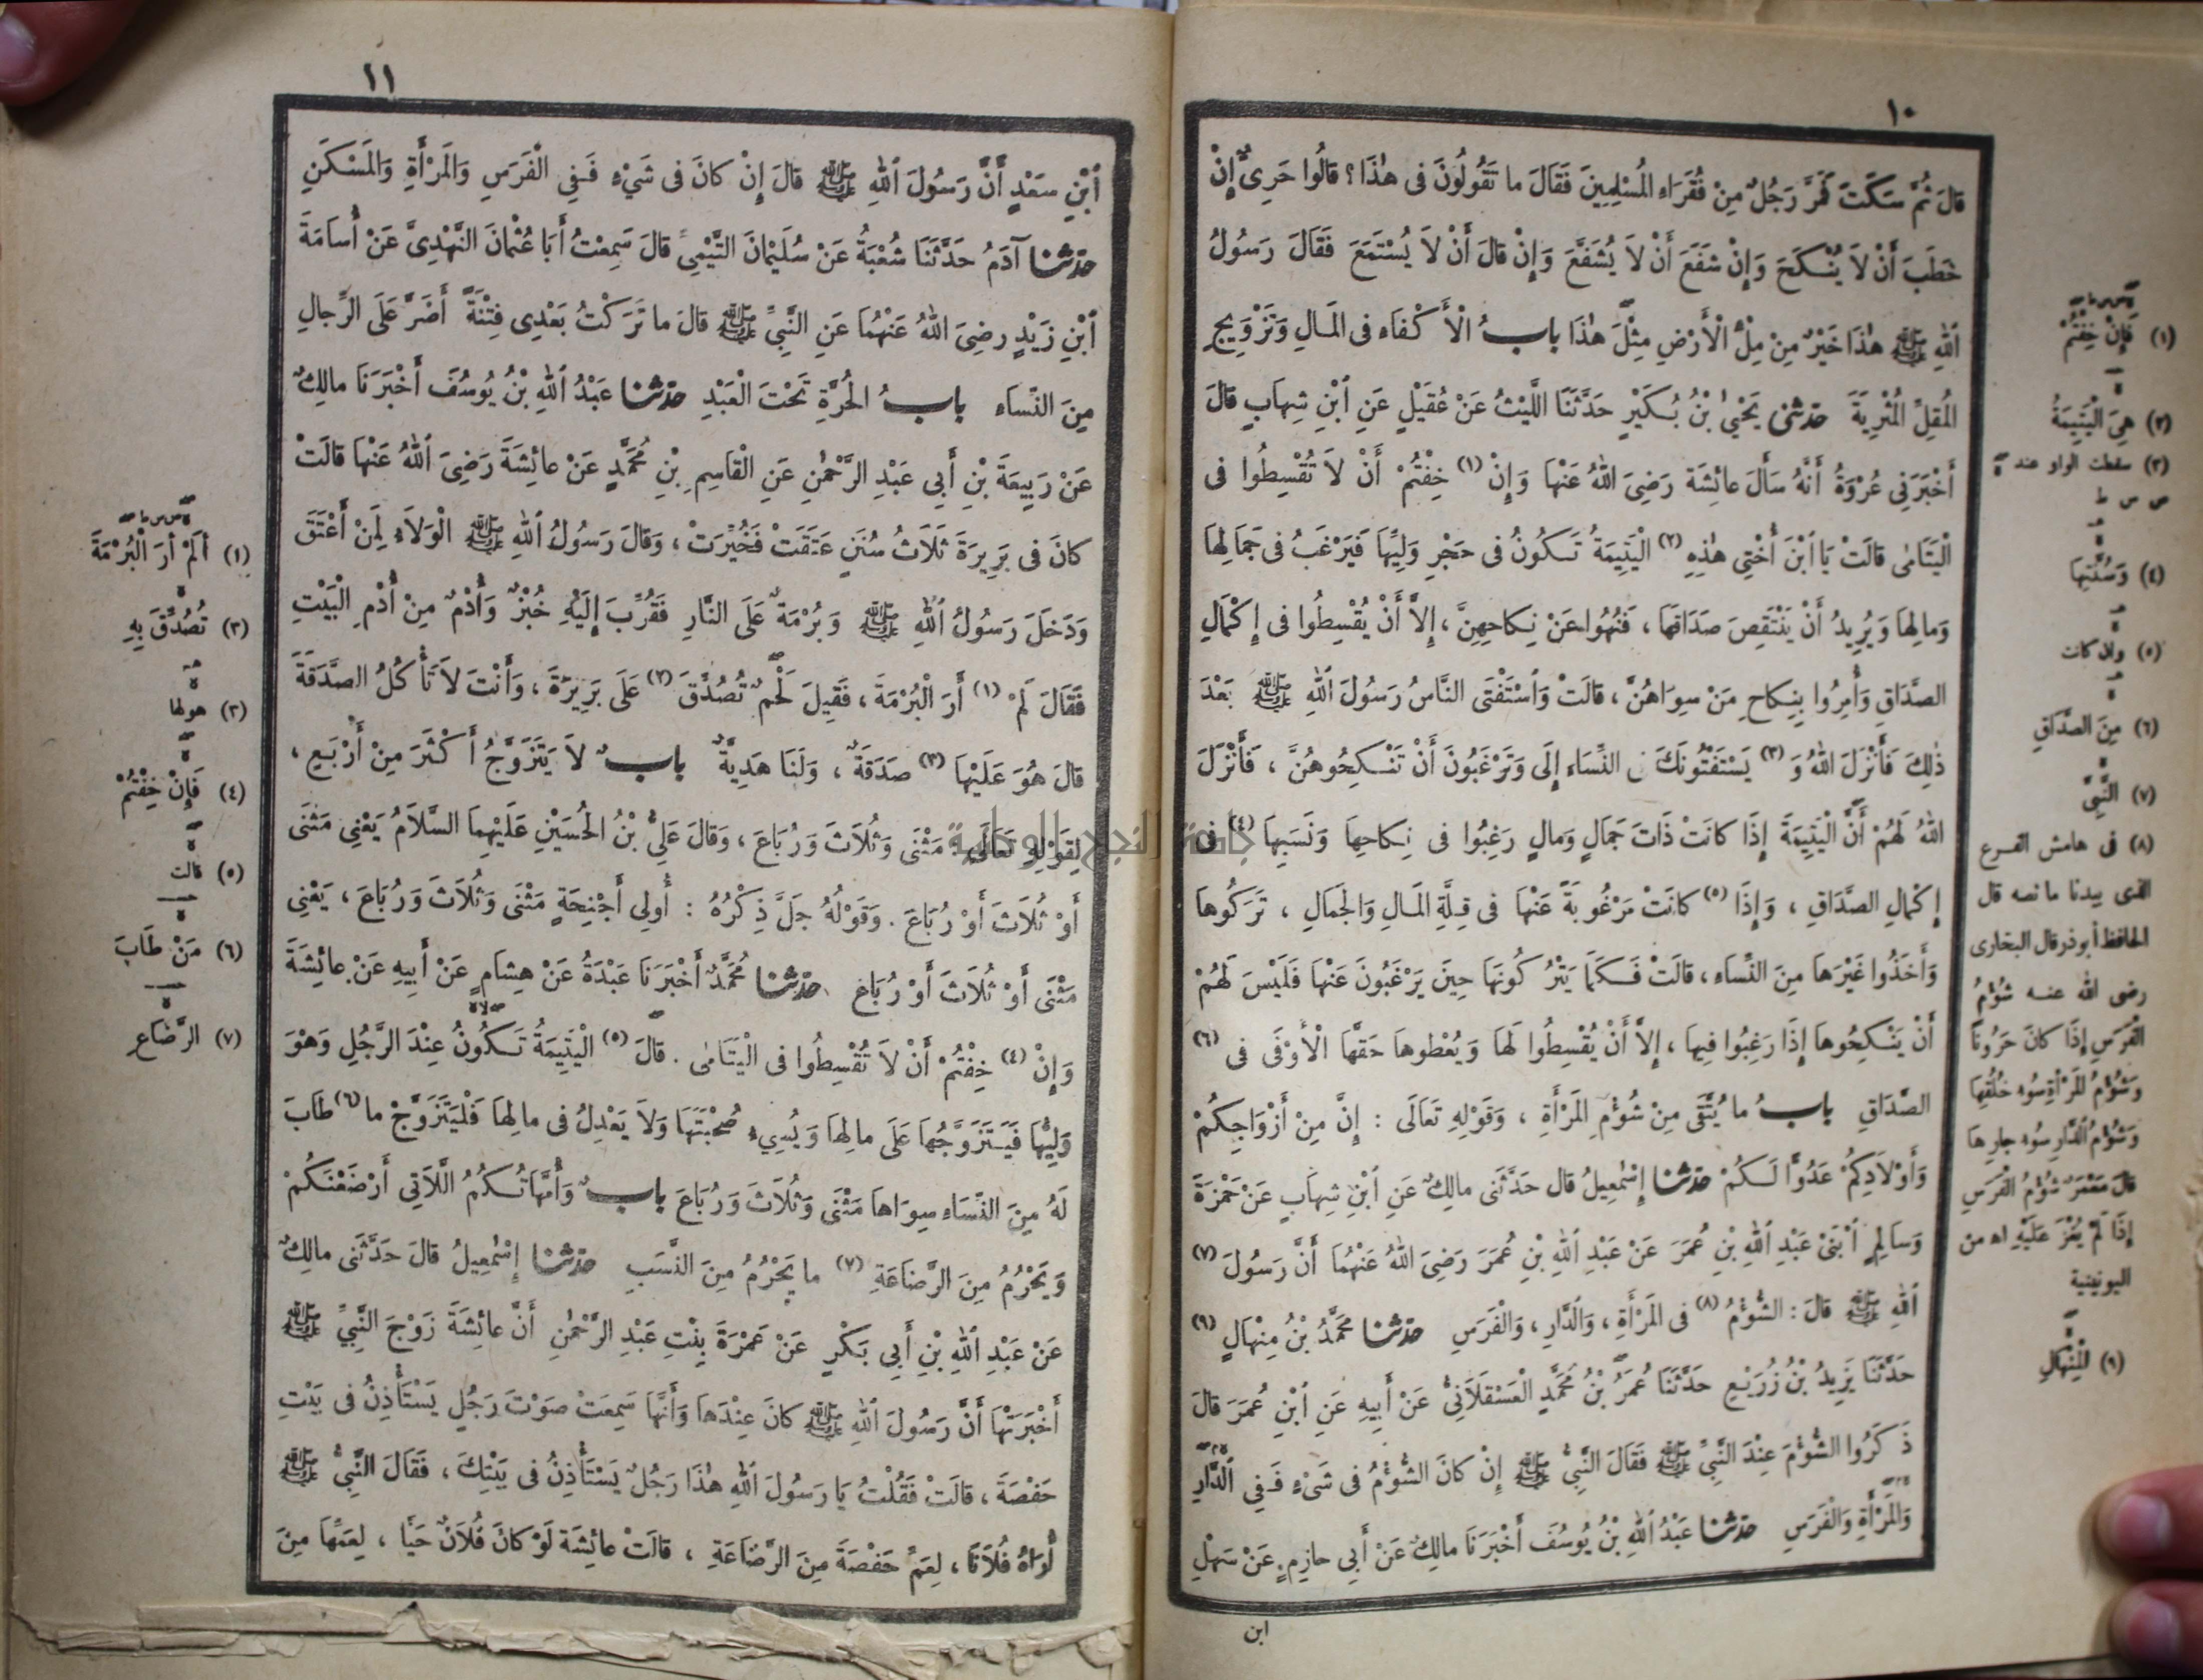 ١٠
قالَ ثُمَّ سَكَتَ فَمَرَّ رَجُلٌ مِنْ فُقَرَاءِ المُسْلِمِينَ فَقَالَ ما تَقُولُونَ فى هٰذَا؟ قالُوا حَرِىٌّ إِنْ
خَطَبَ أَنْ لاَ يُنْكَحَ وَإِنْ شَفَعَ أَنْ لاَ يُشَفَّعَ وَإِنْ قالَ أَنْ لاَ يُسْتَمَعَ فَقَالَ رَسُولُ
اللهِ ﷺ هٰذَا خَيْرٌ مِنْ مِلْءِ الْأَرْضِ مِثْلَ هٰذَا بابُ الْأَكْفَاءِ فى المَالِ وَتَزْوِيجِ
المُقِلِّ المُثْرِيَةَ حدّثنى يَحْيىٰ بْنُ بُكَيْرٍ حَدَّثَنَا اللَّيْثُ عَنْ عُقَيْلٍ عَنِ ابْنِ شِهَابٍ قالَ
أَخْبَرَنِى عُرْوَةُ أَنَّهُ سَأَلَ عائِشَةَ رَضِىَ اللهُ عَنْهَا وَإِنْ (١) خِفْتُمْ أَنْ لاَ تُقْسِطُوا فى
الْيَتَامٰى قالَتْ يَا ابْنَ أُخْتِى هٰذِهِ (٢) الْيَتِيمَةُ تَكُونُ فى حَجْرِ وَلِيِّهَا فَيَرْغَبُ فى جَمَالِهَا
وَمالِهَا وَيُرِيدُ أَنْ يَنْتَقِصَ صَدَاقَهَا ، فَنُهُوا عَنْ نِكاحِهِنَّ ، إِلاَّ أَنْ يُقْسِطُوا فى إِكْمَالِ
الصَّدَاقِ وَأُمِرُوا بِنِكاحِ مَنْ سِوَاهُنَّ ، قالَتْ وَاسْتَفْتَى النَّاسُ رَسُولَ اللهِ ﷺ بَعْدَ
ذٰلِكَ فَأَنْزَلَ اللهُ وَ (٣) يَسْتَفْتُونَكَ فى النِّسَاءِ إِلَى وَتَرْغَبُونَ أَنْ تَنْكِحُوهُنَّ ، فَأَنْزَلَ
اللهُ لَهُمْ أَنَّ الْيَتِيمَةَ إِذَا كانَتْ ذَاتَ جَمَالٍ وَمالٍ رَغِبُوا فى نِكاحِهَا وَنَسَبِهَا (٤) فى
إِكْمَالِ الصَّدَاقِ ، وَإِذَا (٥) كانَتْ مَرْغُوبَةً عَنْهَا فى قِلَّةِ المَالِ وَالجَمَالِ ، تَرَكُوهَا
وَأَخَذُوا غَيْرَهَا مِنَ النِّسَاءِ ، قالَتْ فَكَمَا يَتْرُكُونَهَا حِينَ يَرْغَبُونَ عَنْهَا فَلَيْسَ لَهُمْ
أَنْ يَنْكِحُوهَا إِذَا رَغِبُوا فِيهَا ، إِلاَّ أَنْ يُقْسِطُوا لَهَا وَيُعْطُوهَا حَقَّهَا الْأَوْفَى فى (٦)
الصَّدَاقِ بابُ ما يُتَّقَى مِنْ شُؤْمِ المَرْأَةِ ، وَقَوْلِهِ تَعَالَى : إِنَّ مِنْ أَزْوَاجِكُمْ
وَأَوْلاَدِكُمْ عَدُوًّا لَكُمْ حدّثنا إِسْمٰعِيلُ قالَ حَدَّثَنى مالِكٌ عَنِ ابْنِ شِهَابٍ عَنْ حَمْزَةَ
وَسَالِمٍ ابْنَىْ عَبْدِ اللهِ بْنِ عُمَرَ عَنْ عَبْدِ اللهِ بْنِ عُمَرَ رَضِىَ اللهُ عَنْهُمَا أَنَّ رَسُولَ (٧)
اللهِ ﷺ قالَ : الشُّؤْمُ (٨) فى المَرْأَةِ ، وَالدَّارِ ، وَالْفَرَسِ حدّثنا مُحَمَّدُ بْنُ مِنْهَالٍ (٩)
حَدَّثَنَا يَزِيدُ بْنُ زُرَيْعٍ حَدَّثَنَا عُمَرُ بْنُ مُحَمَّدٍ الْعَسْقَلاَنِىُّ عَنْ أَبِيهِ عَنِ ابْنِ عُمَرَ قالَ
ذَكَرُوا الشُّؤْمَ عِنْدَ النَّبِىِّ ﷺ فَقَالَ النَّبِىُّ ﷺ إِنْ كانَ الشُّؤْمُ فى شَىْءٍ فَفِى الدَّارِ
وَالمَرْأَةِ وَالْفَرَسِ حدّثنا عَبْدُ اللهِ بْنُ يُوسُفَ أَخْبَرَنَا مالِكٌ عَنْ أَبِى حازِمٍ عَنْ سَهْلِ
ابن
(١) فَإِنْ خِفْتُمْ
(٢) هِىَ الْيَتِيمَةُ
(٣) سقطت الواو عند
ص س ط
(٤) وَسُنَّتِهَا
(٥) وان كانت
(٦) مِنَ الصَّدَاقِ
(٧) النَّبِىَّ
(٨) فى هامش الفرع
الذى بيدنا ما نصه قال
الحافظ أبو ذر قال البخارى
رضى الله عنه شُؤْمُ
الْفَرَسِ إِذَا كانَ حَرُونًا
وَشُؤْمُ المَرْأَةِ سُوءِ خُلُقِهَا
وَشُؤْمُ الدَّارِ سُوءِ جارِهَا
قالَ مَعْمَرٌ شُؤْمُ الفَرَسِ
إِذَا لَمْ يُغْزَ عَلَيْهِ اه من
اليونينية
(٩) المِنْهَالِ
١١
ابْنِ سَعْدٍ أَنَّ رَسُولَ اللهِ ﷺ قالَ إِنْ كانَ فى شَىْءٍ فَفِى الْفَرَسِ وَالمَرْأَةِ وَالمَسْكَنِ
حدّثنا آدَمُ حَدَّثَنَا شُعْبَةُ عَنْ سُلَيْمانَ التَّيْمِىِّ قالَ سَمِعْتُ أَبَا عُثْمانَ النَّهْدِىَّ عَنْ أُسَامَةَ
ابْنِ زَيْدٍ رضِىَ اللهُ عَنْهُمَا عَنِ النَّبِىِّ ﷺ قالَ ما تَرَكْتُ بَعْدِى فِتْنَةً أَضَرَّ عَلَى الرِّجالِ
مِنَ النِّسَاءِ بابُ الحُرَّةِ تَحْتَ الْعَبْدِ حدّثنا عَبْدُ اللهِ بْنُ يُوسُفَ أَخْبَرَنَا مالِكٌ
عَنْ رَبِيعَةَ بْنِ أَبِى عَبْدِ الرَّحْمٰنِ عَنِ الْقَاسِمِ بْنِ مُحَمَّدٍ عَنْ عائِشَةَ رَضِىَ اللهُ عَنْهَا قالَتْ
كانَ فى بَرِيرَةَ ثَلاَثُ سُنَنٍ عَتَقَتْ فَخُيِّرَتْ ، وَقالَ رَسُولُ اللهِ ﷺ الْوَلاَءُ لِمَنْ أَعْتَقَ
وَدَخَلَ رَسُولُ اللهِ ﷺ وَبُرْمَةٌ عَلَى النَّارِ فَقُرِّبَ إِلَيْهِ خُبْزٌ وَأُدْمٌ مِنْ أُدْمِ الْبَيْتِ
فَقَالَ لَمْ (١) أَرَ الْبُرْمَةَ ، فَقِيلَ لَحْمٌ تُصُدِّقَ (٢) عَلَى بَرِيرَةَ ، وَأَنْتَ لاَ تَأْكُلُ الصَّدَقَةَ
قالَ هُوَ عَلَيْهَا (٣) صَدَقَةٌ ، وَلَنَا هَدِيَّةٌ بابٌ لاَ يَتَزَوَّجُ أَكْثَرَ مِنْ أَرْبَعٍ ،
لِقَوْلِهِ تَعَالَى : مَثْنَى وَثُلاَثَ وَرُبَاعَ ، وَقالَ عَلِىُّ بْنُ الحُسَيْنِ عَلَيْهِمَا السَّلاَمُ يَعْنِى مَثْنَى
أَوْ ثُلاَثَ أَوْ رُبَاعَ . وَقَوْلُهُ جَلَّ ذِكْرُهُ : أُولِى أَجْنِحَةٍ مَثْنَى وَثُلاَثَ وَرُبَاعَ ، يَعْنِى
مَثْنَى أَوْ ثُلاَثَ أَوْ رُبَاعَ حدّثنا مُحَمَّدٌ أَخْبَرَنَا عَبْدَةُ عَنْ هِشَامٍ عَنْ أَبِيهِ عَنْ عائِشَةَ
وَإِنْ (٤) خِفْتُمْ أَنْ لاَ تُقْسِطُوا فى الْيَتَامٰى . قالَ (٥) الْيَتِيمَةُ تَكُونُ عِنْدَ الرَّجُلِ وَهْوَ
وَلِيُّهَا فَيَتَزَوَّجُهَا عَلَى مالِهَا وَيُسِىءُ صُحْبَتَهَا وَلاَ يَعْدِلُ فى مالِهَا فَلْيَتَزَوَّجْ ما (٦) طَابَ
لَهُ مِنَ النِّسَاءِ سِوَاهَا مَثْنَى وَثُلاَثَ وَرُبَاعَ بابٌ وَأُمَّهَاتُكُمُ اللَّاتِى أَرْضَعْنَكُمْ
وَيَحْرُمُ مِنَ الرَّضَاعَةِ (٧) ما يَحْرُمُ مِنَ النَّسَبِ حدّثنا إِسْمٰعِيلُ قالَ حَدَّثَنى مالِكٌ
عَنْ عَبْدِ اللهِ بْنِ أَبِى بَكْرٍ عَنْ عَمْرَةَ بِنْتِ عَبْدِ الرَّحْمٰنِ أَنَّ عائِشَةَ زَوْجَ النَّبِىِّ ﷺ
أَخْبَرَتْهَا أَنَّ رَسُولَ اللهِ ﷺ كانَ عِنْدَهَا وَأَنَّهَا سَمِعَتْ صَوْتَ رَجُلٍ يَسْتَأْذِنُ فى بَيْتِ
حَفْصَةَ ، قالَتْ فَقُلْتُ يَا رَسُولَ اللهِ هٰذَا رَجُلٌ يَسْتَأْذِنُ فى بَيْتِكَ ، فَقَالَ النَّبِىُّ ﷺ
أُرَاهُ فُلاَنًا ، لِعَمِّ حَفْصَةَ مِنَ الرَّضَاعَةِ ، قالَتْ عائِشَةُ لَوْ كانَ فُلاَنٌ حَيًّا ، لِعَمِّهَا مِنَ
(١) أَلَمْ أَرَ الْبُرْمَةَ
(٢) تُصُدِّقَ بِهِ
(٣) هو لها
(٤) فَإِنْ خِفْتُمْ
(٥) قالت
(٦) مَنْ طَابَ
(٧) الرَّضَاعِ
جامعة النجاح الوطنية